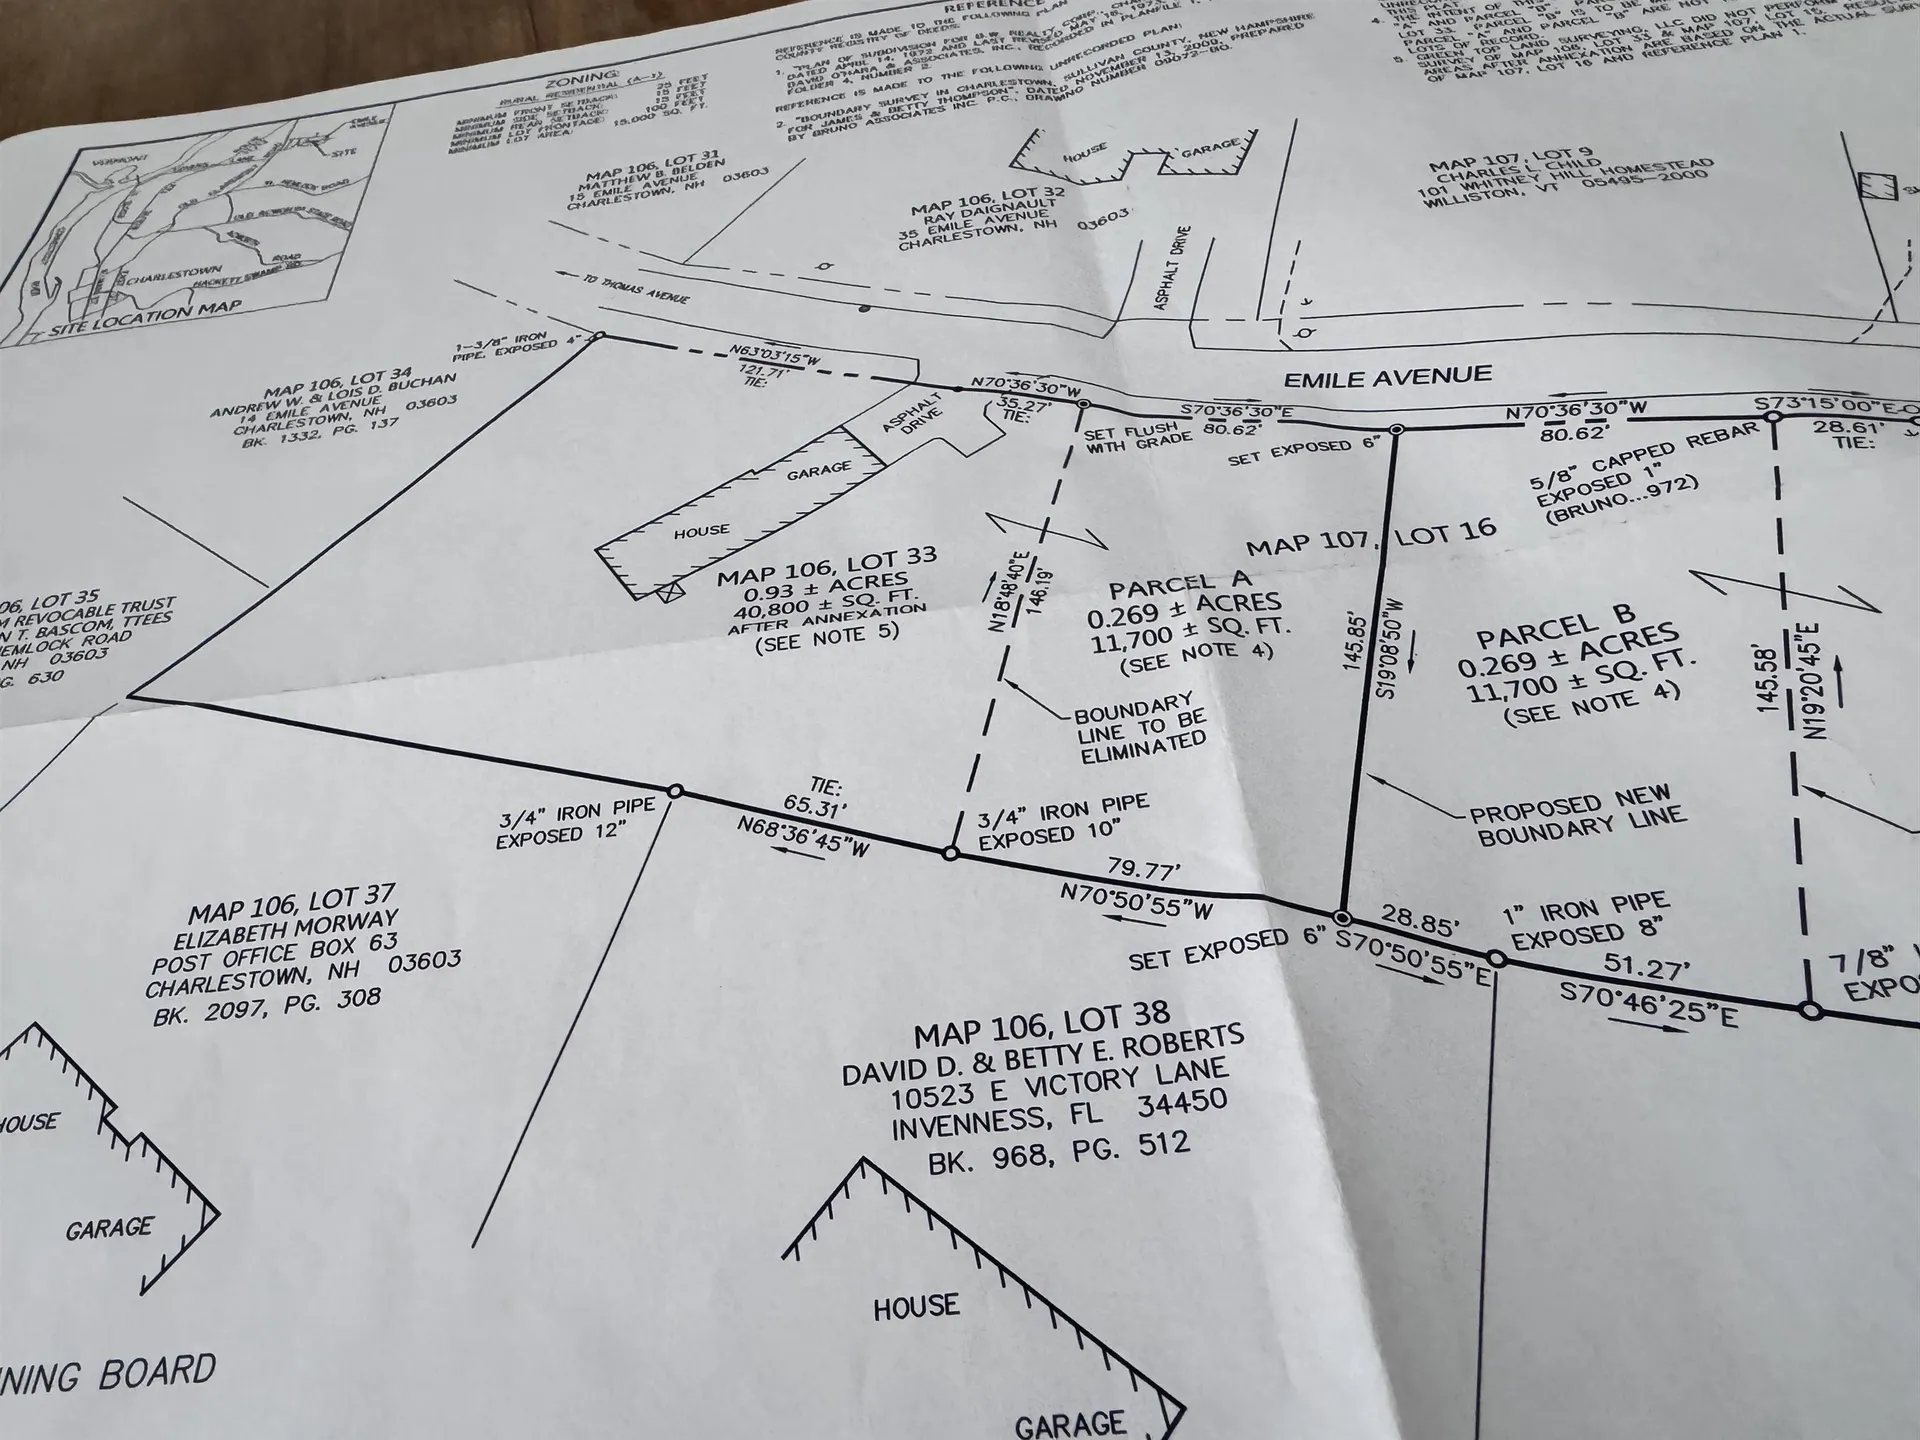 REFERENCE
REFERENCE IS MADE TO THE FOLLOWING PLAN
COUNTY REGISTRY OF DEEDS:
1. "PLAN OF SUBDIVISION FOR
DATED APRIL 14, 1972 AND LAST REVISED MAY 16, 1973,
DAVID O'HARA & ASSOCIATES, INC., RECORDED IN PLANFILE 1,
FOLDER 4, NUMBER 2.
REFERENCE IS MADE TO THE FOLLOWING UNRECORDED PLAN:
2. "BOUNDARY SURVEY IN CHARLESTOWN, SULLIVAN COUNTY, NEW HAMPSHIRE
FOR JAMES & BETTY THOMPSON". DATED NOVEMBER 13, 2009, PREPARED
BY BRUNO ASSOCIATES INC. P.C., DRAWING NUMBER 09072-BG.
THIS PLAT.
4. THE INTENT OF THIS
"A" AND PARCEL "B" IS TO BE
LOT 33. PARCEL "B"
PARCEL "A" AND PARCEL "B" ARE NOT
LOTS OF RECORD.
5. GREEN TOP LAND SURVEYING, LLC DID NOT PERFORM
SURVEY OF MAP 106, LOT 33 & MAP 107, LOT 15.
AREAS AFTER ANNEXATION ARE BASED ON THE ACTUAL
OF MAP 107, LOT 16 AND REFERENCE PLAN 1.
ZONING
RURAL RESIDENTIAL (A-1)
MINIMUM FRONT SETBACK: 25 FEET
MINIMUM SIDE SETBACK: 15 FEET
MINIMUM REAR SETBACK: 15 FEET
MINIMUM LOT FRONTAGE: 100 FEET
MINIMUM LOT AREA: 15,000 SQ. FT.
VERMONT
SITE
CHARLESTOWN
ROAD
SITE LOCATION MAP
MAP 106, LOT 31
MATTHEW B. BELDEN
15 EMILE AVENUE
CHARLESTOWN, NH 03603
HOUSE
GARAGE
MAP 106, LOT 32
RAY DAIGNAULT
35 EMILE AVENUE
CHARLESTOWN, NH 03603
MAP 107, LOT 9
CHARLES L. CHILD
101 WHITNEY HILL HOMESTEAD
WILLISTON, VT 05495-2000
ASPHALT DRIVE
TO THOMAS AVENUE
1-3/8" IRON
PIPE, EXPOSED 4"
MAP 106, LOT 34
ANDREW W. & LOIS D. BUCHAN
14 EMILE AVENUE
CHARLESTOWN, NH 03603
BK. 1332, PG. 137
N63°03'15"W
121.71'
TIE:
EMILE AVENUE
N70°36'30"W
35.27'
TIE:
S70°36'30"E
80.62'
N70°36'30"W
80.62'
S73°15'00"E
28.61'
TIE:
ASPHALT
DRIVE
SET FLUSH
WITH GRADE
SET EXPOSED 6"
5/8" CAPPED REBAR
EXPOSED 1"
(BRUNO...972)
GARAGE
HOUSE
MAP 106, LOT 33
0.93 ± ACRES
40,800 ± SQ. FT.
AFTER ANNEXATION
(SEE NOTE 5)
N18°48'40"E
146.19'
MAP 107, LOT 16
PARCEL A
0.269 ± ACRES
11,700 ± SQ. FT.
(SEE NOTE 4)
145.85'
S19°08'50"W
PARCEL B
0.269 ± ACRES
11,700 ± SQ. FT.
(SEE NOTE 4)
145.58'
N19°20'45"E
06, LOT 35
M REVOCABLE TRUST
N T. BASCOM, TTEES
EMLOCK ROAD
NH 03603
G. 630
BOUNDARY
LINE TO BE
ELIMINATED
PROPOSED NEW
BOUNDARY LINE
3/4" IRON PIPE
EXPOSED 12"
TIE:
65.31'
N68°36'45"W
3/4" IRON PIPE
EXPOSED 10"
79.77'
N70°50'55"W
SET EXPOSED 6"
28.85'
S70°50'55"E
1" IRON PIPE
EXPOSED 8"
51.27'
S70°46'25"E
7/8"
EXPO
MAP 106, LOT 37
ELIZABETH MORWAY
POST OFFICE BOX 63
CHARLESTOWN, NH 03603
BK. 2097, PG. 308
MAP 106, LOT 38
DAVID D. & BETTY E. ROBERTS
10523 E VICTORY LANE
INVENNESS, FL 34450
BK. 968, PG. 512
HOUSE
GARAGE
HOUSE
GARAGE
NING BOARD